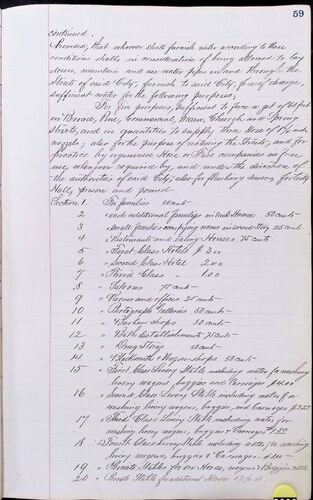 59
continued.
Provided, that whoever shall furnish water according to these
conditions shall, in consideration of being allowed to lay
down, maintain and use water pipes in and through the
Streets of said City, furnish to said City, free of charge,
sufficient water for the following purposes;
For fire purposes, sufficient to force a jet of 60 feet
in Broad, Pine, Commercial, Main, Church and Spring
Streets, and in quantities to supply Hose of 1 1/4 inch
nozzels; also for the purpose of watering the Streets; and for
practice by organized Hose or Fire companies in fire
use, whenever required by, and under the direction of
the authorities of said City; also for flushing sewers, for City
Hall, prison and pound
Section 1. For families
2 " each additional family in Said House 50 cents
3 " small families occupying rooms in second Story 25 cents
4 " Restaurants and Eating Houses 75 cents
5 " First Class Hotels $
6 " Second Class Hotel 2.00
7 " Third Class " 1.00
8 " Saloons 75 cents
9 " Rooms and offices 25 cents
10 " Photograph Galleries 50 cents
11 " Barber shops 50 cents
12 " Bath Establishment 75 cents
13 " Drug Stores 50 cents
14 " Blacksmith & Wagon shops 50 cents
15 " First Class Livery Stable including water for washing
livery wagons buggies and Carriages $4.00
16 " Second Class Livery Stable including water for
washing livery wagons, buggies, and Carriages
17 " Third Class Livery Stable including water for
washing livery wagons, buggies & Carriages
18 " Fourth Class Livery Stable including water for washing
livery wagons, buggies & Carriages
19 " Private Stables for one Horse, wagons & Buggies
20 " Private Stable for additional Horses 12 1/2 cts